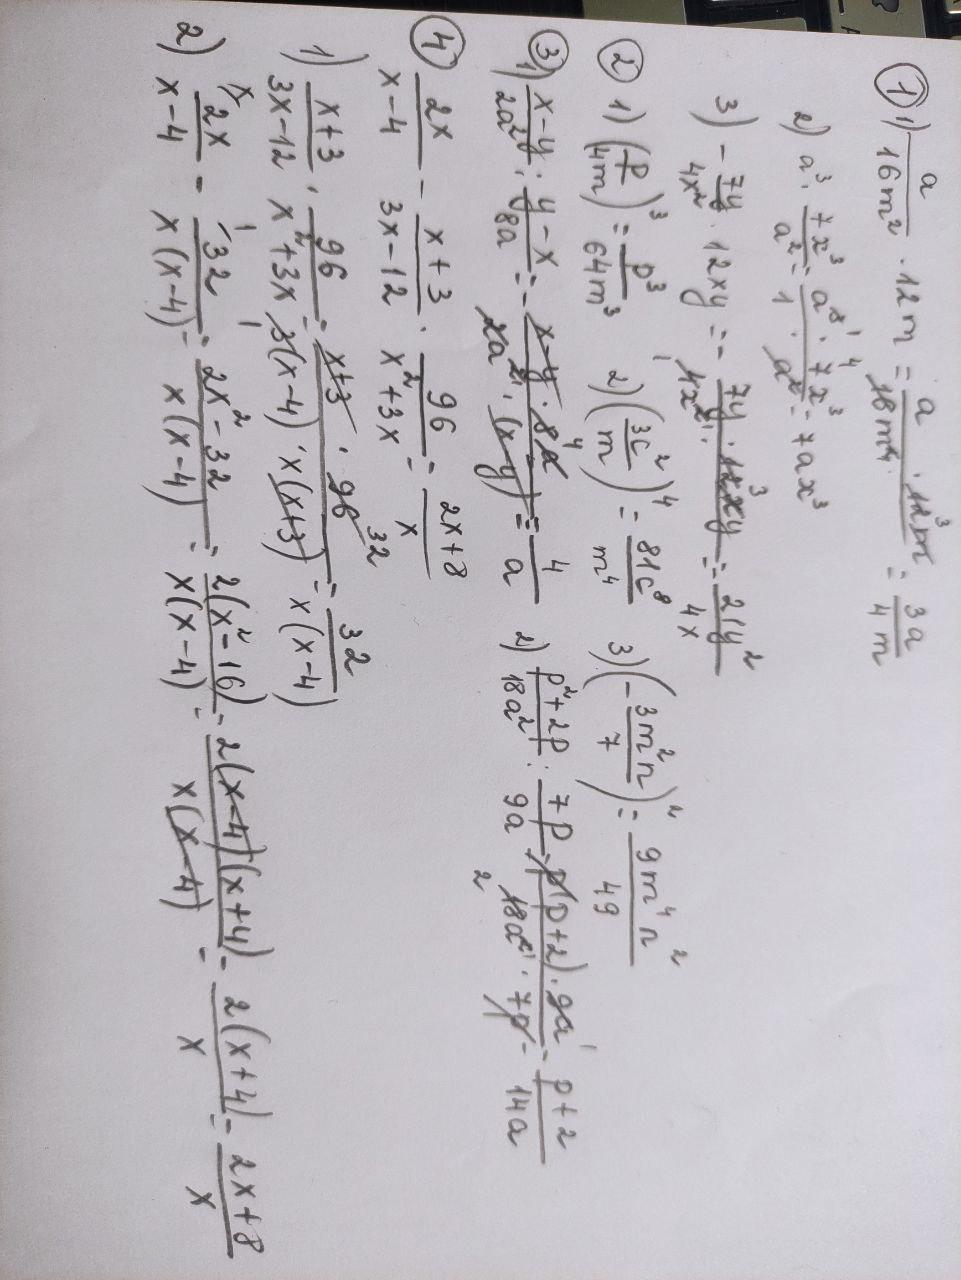 ① 1) a/16m² · 12m = a · 12m³/16m⁴ = 3a/4m
2) a³ · 7x³/a² = a³¹/1 · 7x³/a² = 7ax³
3) - 7y/4x² · 12xy = - 7y · 12xy/4x² = 21y²/4x
② 1) (p/4m)³ = p³/64m³ 2) (3c²/m)⁴ = 81c⁸/m⁴ 3) (- 3m²n/7)² = 9m⁴n²/49
③ 1) x-y/2a² : y-x/8a = - x-y · 8a/2a² · (x-y) = 4/a 2) p²+2p/18a² : 7p/9a = p(p+2) · 9a/18a² · 7p = p+2/14a
④ 2x/x-4 - x+3/3x-12 · 96/x²+3x = 2x+8/x
1) x+3/3x-12 · 96/x²+3x = x+3 · 96/3(x-4) · x(x+3) = 32/x(x-4)
2) 2x/x-4 - 32/x(x-4) = 2x²-32/x(x-4) = 2(x²-16)/x(x-4) = 2(x-4)(x+4)/x(x-4) = 2(x+4)/x = 2x+8/x